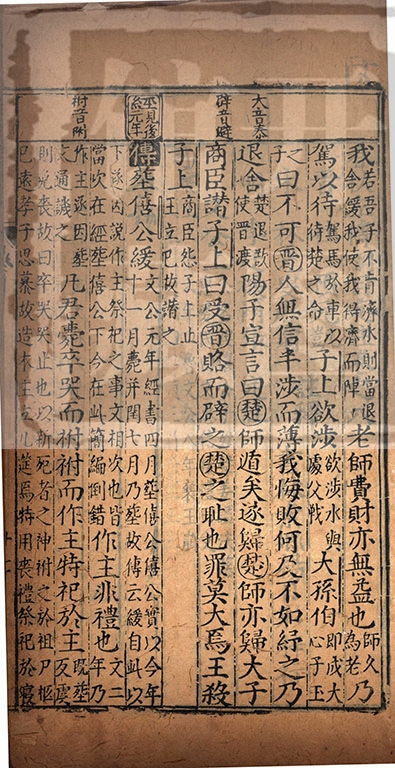 大音泰
辟音避
祔音附
我若吾子不肯濟水則當退舍緩我使我得濟而陣老師費財亦無益也師久為老乃
駕以待駕馬於車以待楚之命子上欲涉欲涉水與處父戰大孫伯即成大心子玉
子曰不可晉人無信半涉而薄我悔敗何及不如紓之乃
退舍楚退欲使晉渡陽子宣言曰楚師遁矣遂歸楚師亦歸大子
商臣譖子上曰受晉賂而辟之楚之恥也罪莫大焉王殺
子上商臣怨子上止王立已故譖之
傳葬僖公緩文公元年經書四月葬僖公僖公實以今年十一月薨并閏七月乃葬故傳云緩自此以
下遂因說作主祭祀之事文相次也皆當次在經葬僖公下今在此簡編倒錯作主非禮也文二年乃
作主遂因葬文通譏之凡君薨卒哭而祔祔而作主特祀於主既葬反虞
則免喪故曰卒哭哭止也以新死者之神祔之於祖尸柩已遠孝子思慕故造木主立几筵焉特用喪禮祭祀於寢